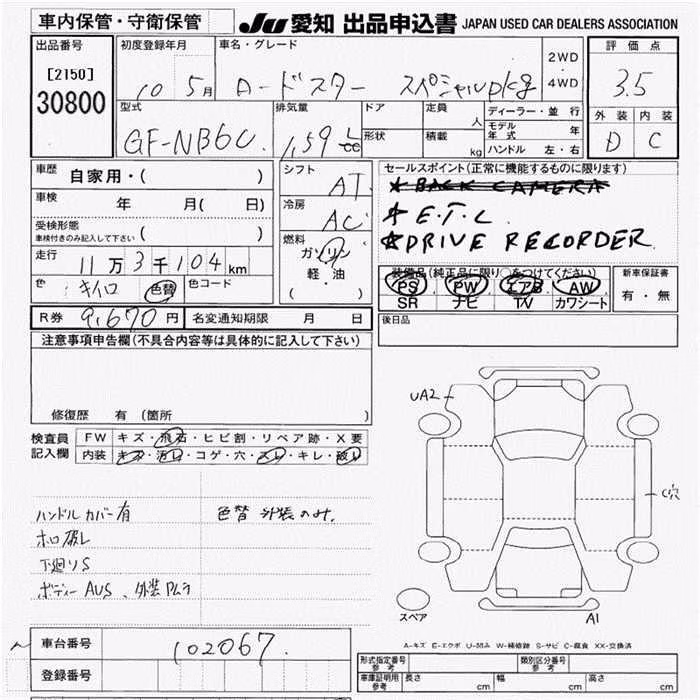 車内保管・守衛保管
JU 愛知 出品申込書 JAPAN USED CAR DEALERS ASSOCIATION
出品番号
[2150]
30800
初度登録年月
10 5月
車名・グレード
ロードスター スペシャルpkg
2WD
・
4WD
評価点
3.5
外装 内装
D C
型式
GF-NB6C
排気量
1.59 L
cc
ドア
形状
定員
人
積載
kg
ディーラー・並行
モデル年式 年
ハンドル 左・右
車歴
自家用・( )
車検
年 月( 日)
受検形態
車検付きのみ記入して下さい ( )
走行
11万3千104km
色
キイロ 色替 色コード
R券 9,670円 名変通知期限 月 日
シフト
AT
冷房
AC
燃料
ガソリン
軽・油
( ・ )
セールスポイント(正常に機能するものに限ります)
★ BACK CAMERA
★ E.T.C.
★ DRIVE RECORDER
装備品(純正品に限り○をつけてください)
PS PW エアB AW
SR ナビ TV カワシート
新車保証書
有・無
後日品
注意事項申告欄(不具合内容等は具体的に記入して下さい)
修復歴 有 (箇所 )
検査員
記入欄
FW キズ・飛石・ヒビ割・リペア跡・X要
内装 キズ・汚レ・コゲ・穴・スレ・キレ・破レ
ハンドルカバー有
ホロ破レ
下廻りS
ボディーAUS、外装Pムラ
色替 外装のみ.
UA2
C穴
A1
スペア
A-キズ E-エクボ U-凹み W-補修跡 S-サビ C-腐食 XX-交換済
車台番号
102067.
登録番号
形式指定番号
参考
類別区分番号
参考
車庫証明用
参考
長さ cm 幅 cm 高さ cm